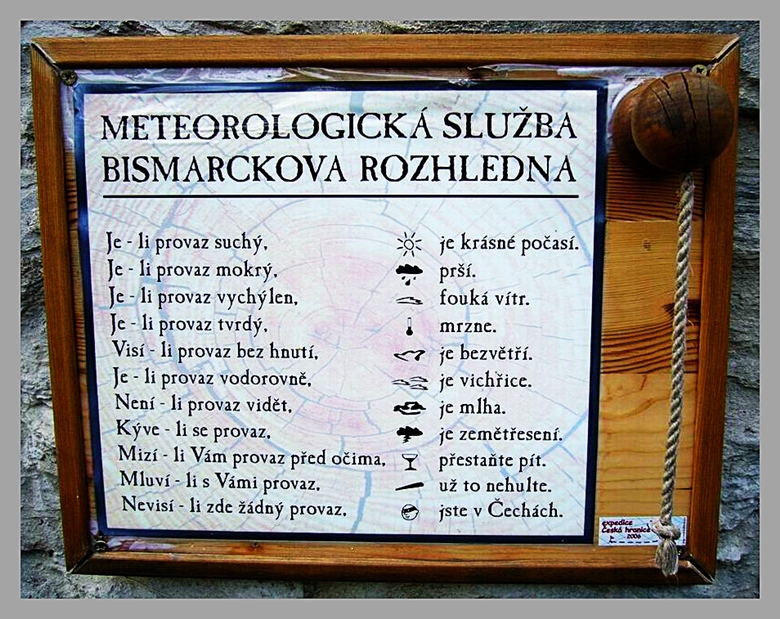 METEOROLOGICKÁ SLUŽBA
BISMARCKOVA ROZHLEDNA
Je - li provaz suchý, je krásné počasí.
Je - li provaz mokrý, prší.
Je - li provaz vychýlen, fouká vítr.
Je - li provaz tvrdý, mrzne.
Visí - li provaz bez hnutí, je bezvětří.
Je - li provaz vodorovně, je vichřice.
Není - li provaz vidět, je mlha.
Kýve - li se provaz, je zemětřesení.
Mizí - li Vám provaz před očima, přestaňte pít.
Mluví - li s Vámi provaz, už to nehulte.
Nevisí - li zde žádný provaz, jste v Čechách.
expedice
Česká hranice
2006